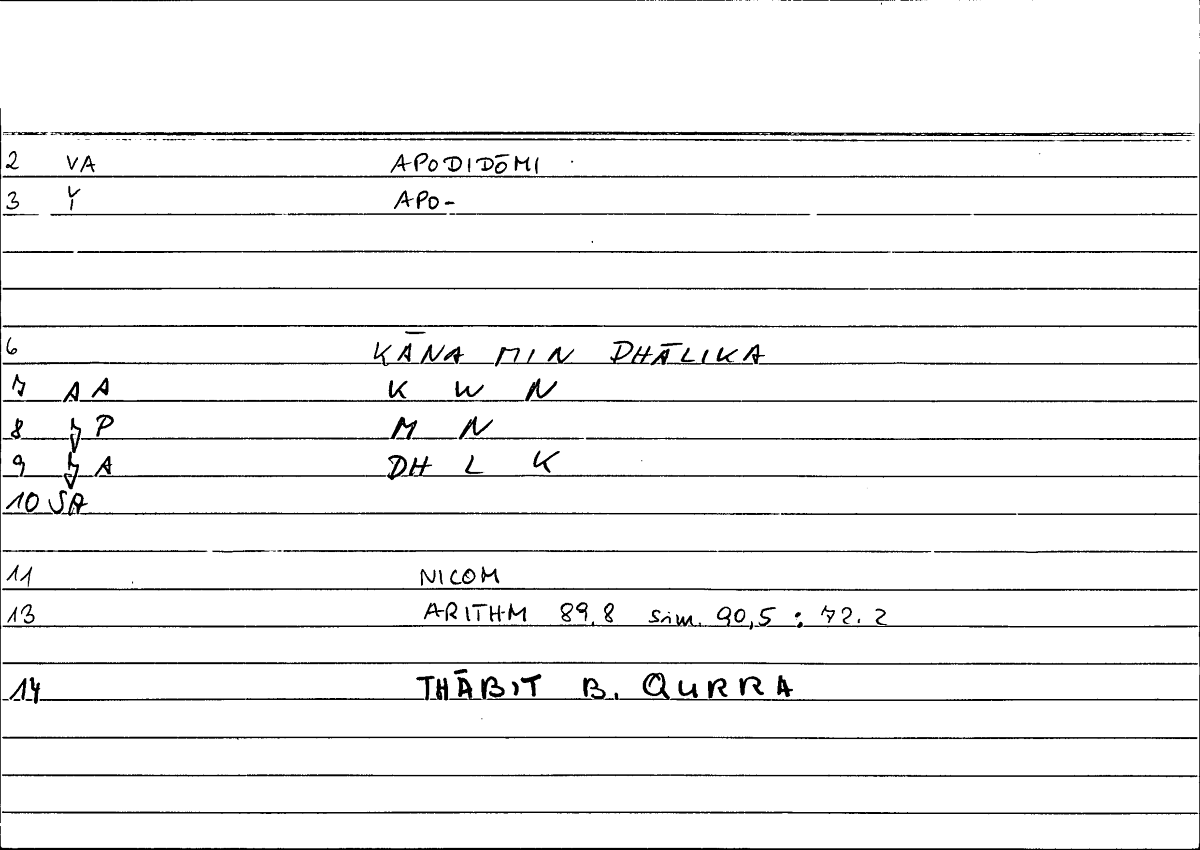 2 VA APODIDŌMI
3 Y APO-
6 KĀNA MIN DHĀLIKA
7 A A K W N
8 P M N
9 A DH L K
10 SA
11 NICOM
13 ARITHM 89,8 sim. 90,5 : 72.2
14 THĀBIT B. QURRA